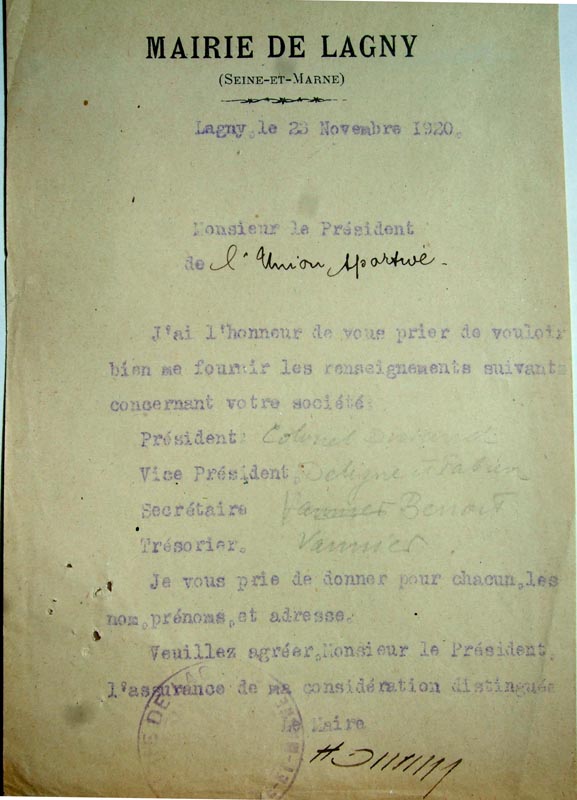 MAIRIE DE LAGNY
(SEINE-ET-MARNE)
Lagny, le 23 Novembre 1920.
Monsieur le Président
de l'Union Sportive.
J'ai l'honneur de vous prier de vouloir
bien me fournir les renseignements suivants
concernant votre société:
Président: Colonel
Vice Président, Deligne et Fabien
Secrétaire Vannier Benoit
Trésorier. Vannier
Je vous prie de donner pour chacun,les
nom,prénoms,et adresse.
Veuillez agréer,Monsieur le Président,
l'assurance de ma considération distinguée
Le Maire